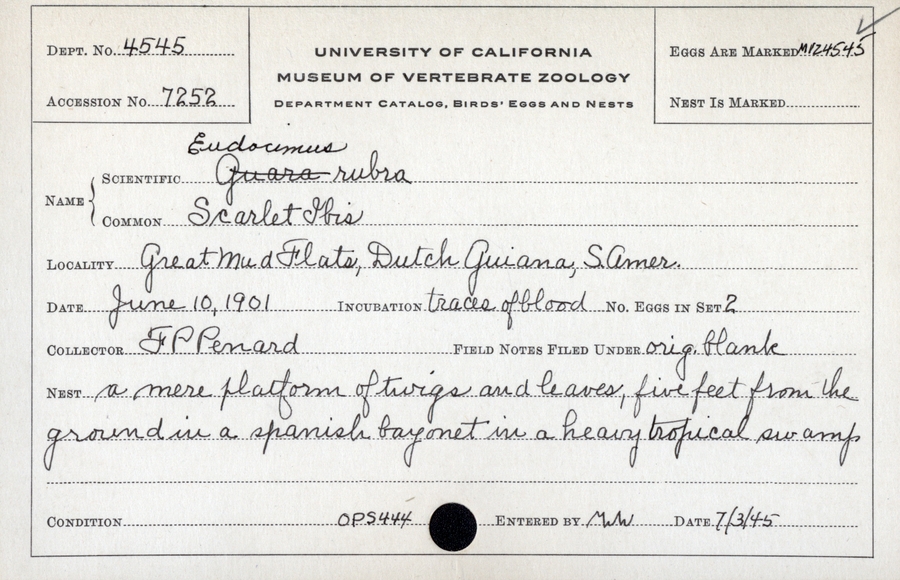 DEPT. NO. 4545
UNIVERSITY OF CALIFORNIA
MUSEUM OF VERTEBRATE ZOOLOGY
DEPARTMENT CATALOG, BIRDS' EGGS AND NESTS
EGGS ARE MARKED M124545
ACCESSION NO. 7252
NEST IS MARKED
Eudocimus
NAME
SCIENTIFIC Guara rubra
COMMON Scarlet Ibis
LOCALITY Great Mud Flats, Dutch Guiana, S. Amer.
DATE June 10, 1901 INCUBATION traces of blood NO. EGGS IN SET 2
COLLECTOR F P Penard FIELD NOTES FILED UNDER orig. blank
NEST a mere platform of twigs and leaves, five feet from the
ground in a spanish bayonet in a heavy tropical swamp
CONDITION OPS444 ENTERED BY MW DATE 7/3/45